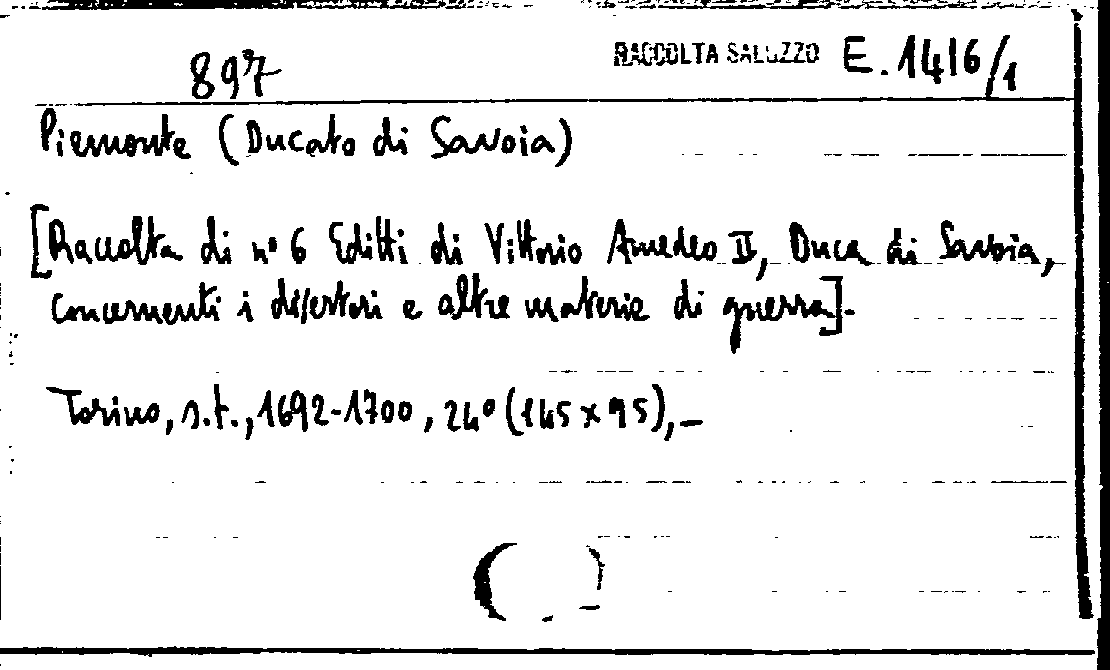 897
RACCOLTA SALUZZO E. 1416/1
Piemonte (Ducato di Savoia)
[Raccolta di n° 6 Editti di Vittorio Amedeo II, Duca di Savoia,
concernenti i disertori e altre materie di guerra].
Torino, s.t., 1692-1700, 24° (145 x 95), –